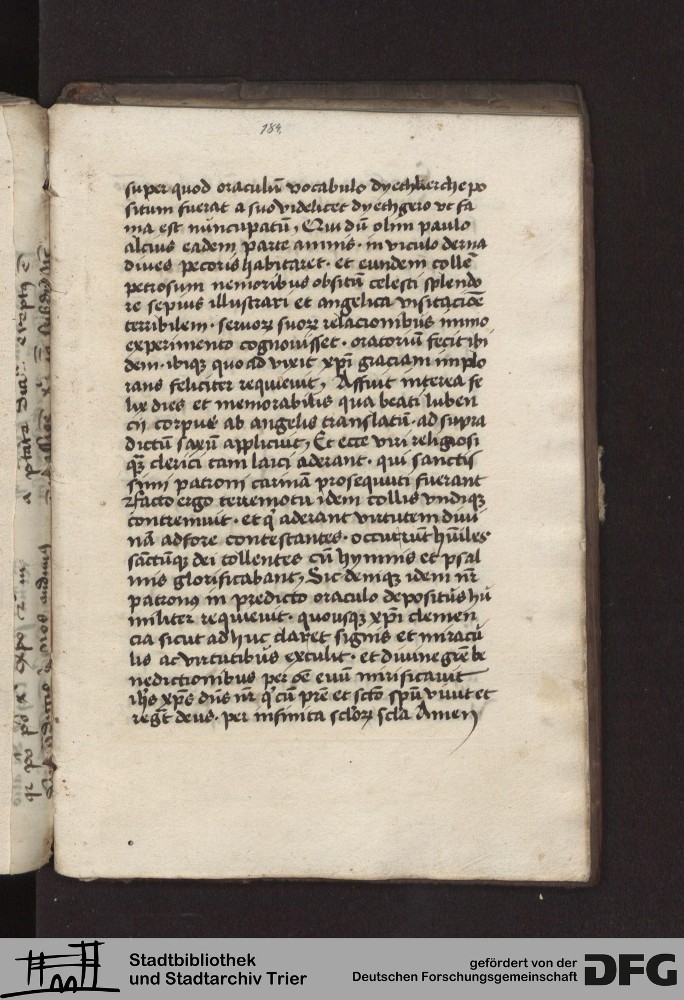 184.
super quod oraculū vocabulo dyethkerche po
situm fuerat a suo videlicet dyethgero vt fa
ma est nuncupatū, Qui dū olim paulo
alcius eadem parte amnis · in viculo derna
dives pecoris habitaret · et eundem collē
petrosum nemoribus obsitū celesti splendo
re sepius illustrari et angelica visitacione
terribilem · servoꝝ suoꝝ relacionibus immo
experimento cognovisset · oratoriū fecit ibi
dem · ibiqꝫ quoad vixit xp̄i graciam implo
rans feliciter requievit, Affuit interea fe
lix dies et memorabilis qua beati luben
cii corpus ab angelis translatū · ad supra
dictū saxū applicuit, Et ecce viri religiosi
qꝫ clerici tam laici aderant · qui sanctis
simi patroni carinā prosequuti fuerant
facto ergo terremotu idem collis vndiqꝫ
contremuit · et qͥ aderant virtutem divi
nā adfore contestantes · occurrūt hūiles
sanctūqꝫ dei tollentes cū hymnis et psal
mis glorificabant, Sic deniqꝫ idem nr̄
patronus in predicto oraculo depositus hu
militer requievit · quousqꝫ xp̄i clemen
cia sicut adhuc claret signis et miracu
lis ac virtutibus extulit · et divine grē be
nedictionibus per oē evū mirificavit
ihs xp̄s dn̄s nr̄ qͥ cū prē et scto spū vivit et
regn̄t deus · per infinita sc̄loꝝ sc̄la Amen
Stadtbibliothek
und Stadtarchiv Trier
gefördert von der
Deutschen Forschungsgemeinschaft
DFG